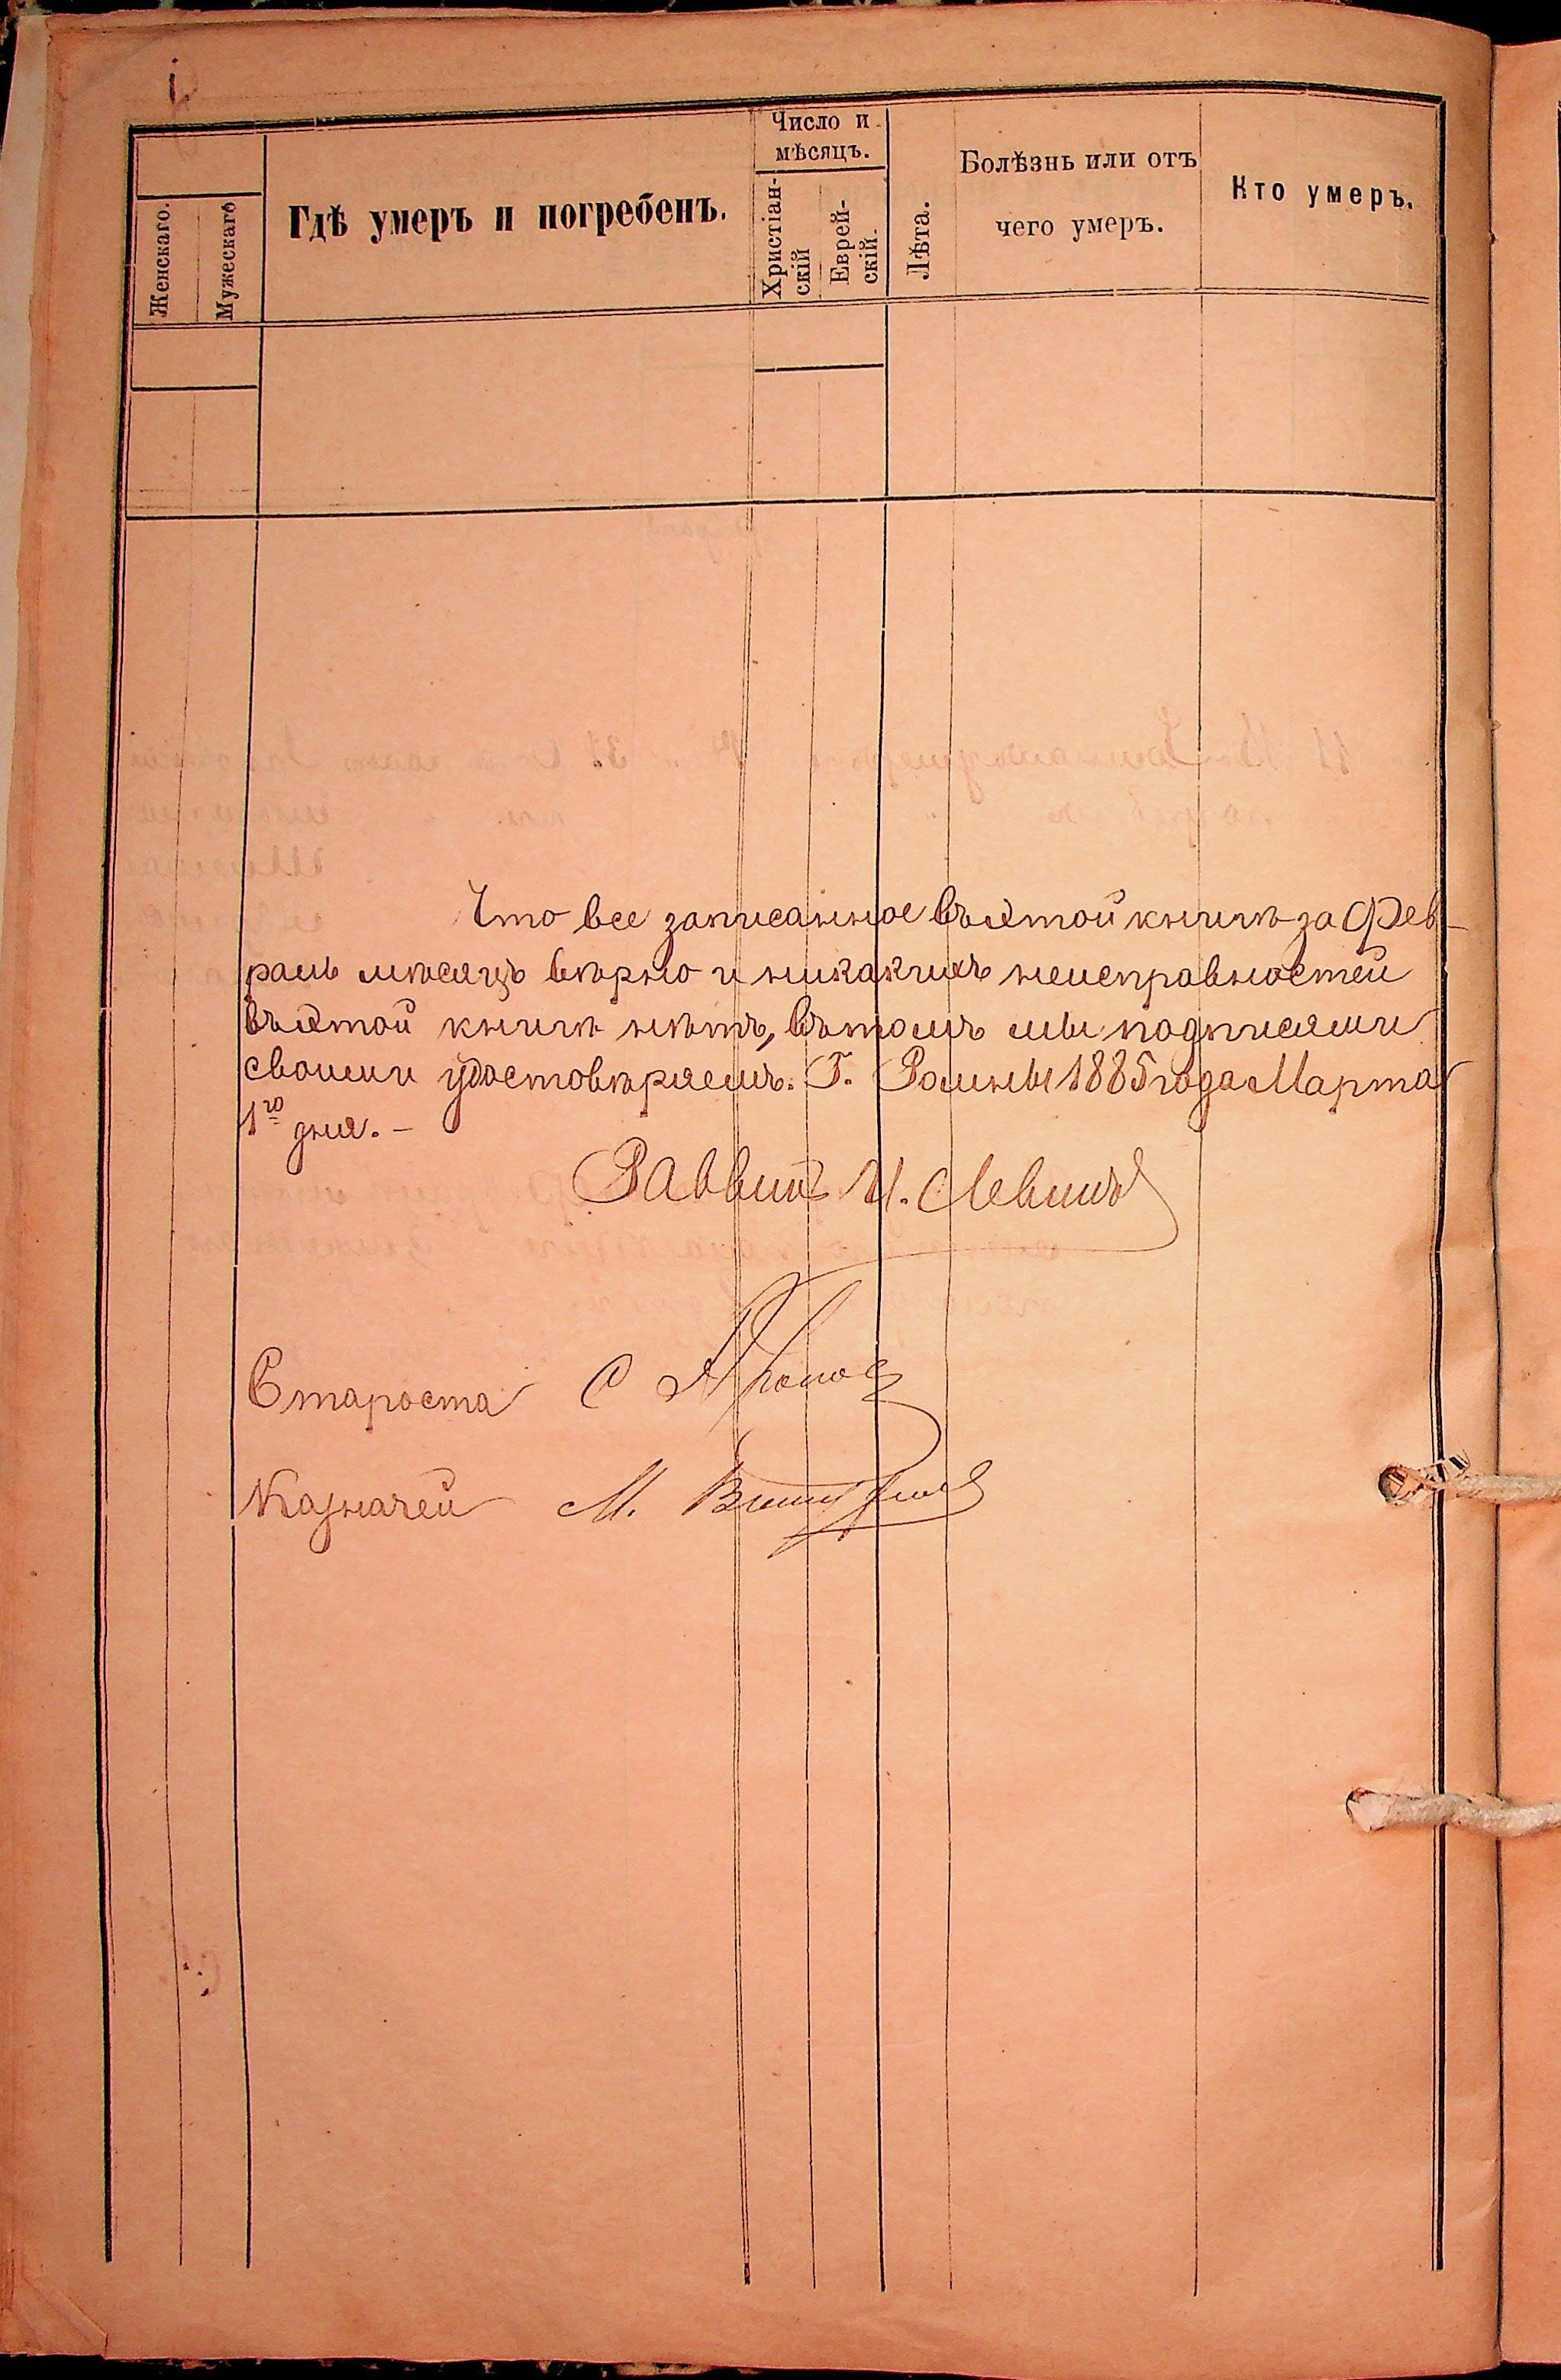 Число и
мѣсяцъ.
Женскаго.
Мужескаго
Гдѣ умеръ и погребенъ.
Христіан-
скій
Еврей-
скій.
Лѣта.
Болѣзнь или отъ
чего умеръ.
Кто умеръ.
Что все записанное въ этой книгѣ за Фев-
раль мѣсяцъ вѣрно и никакихъ неисправностей
въ этой книгѣ нѣтъ, въ томъ мы подписями
своими удостовѣряемъ. Г. Ромны 1885 года Марта
1го дня. -
Раввинъ И. Левинъ
Староста С
Казначей М.